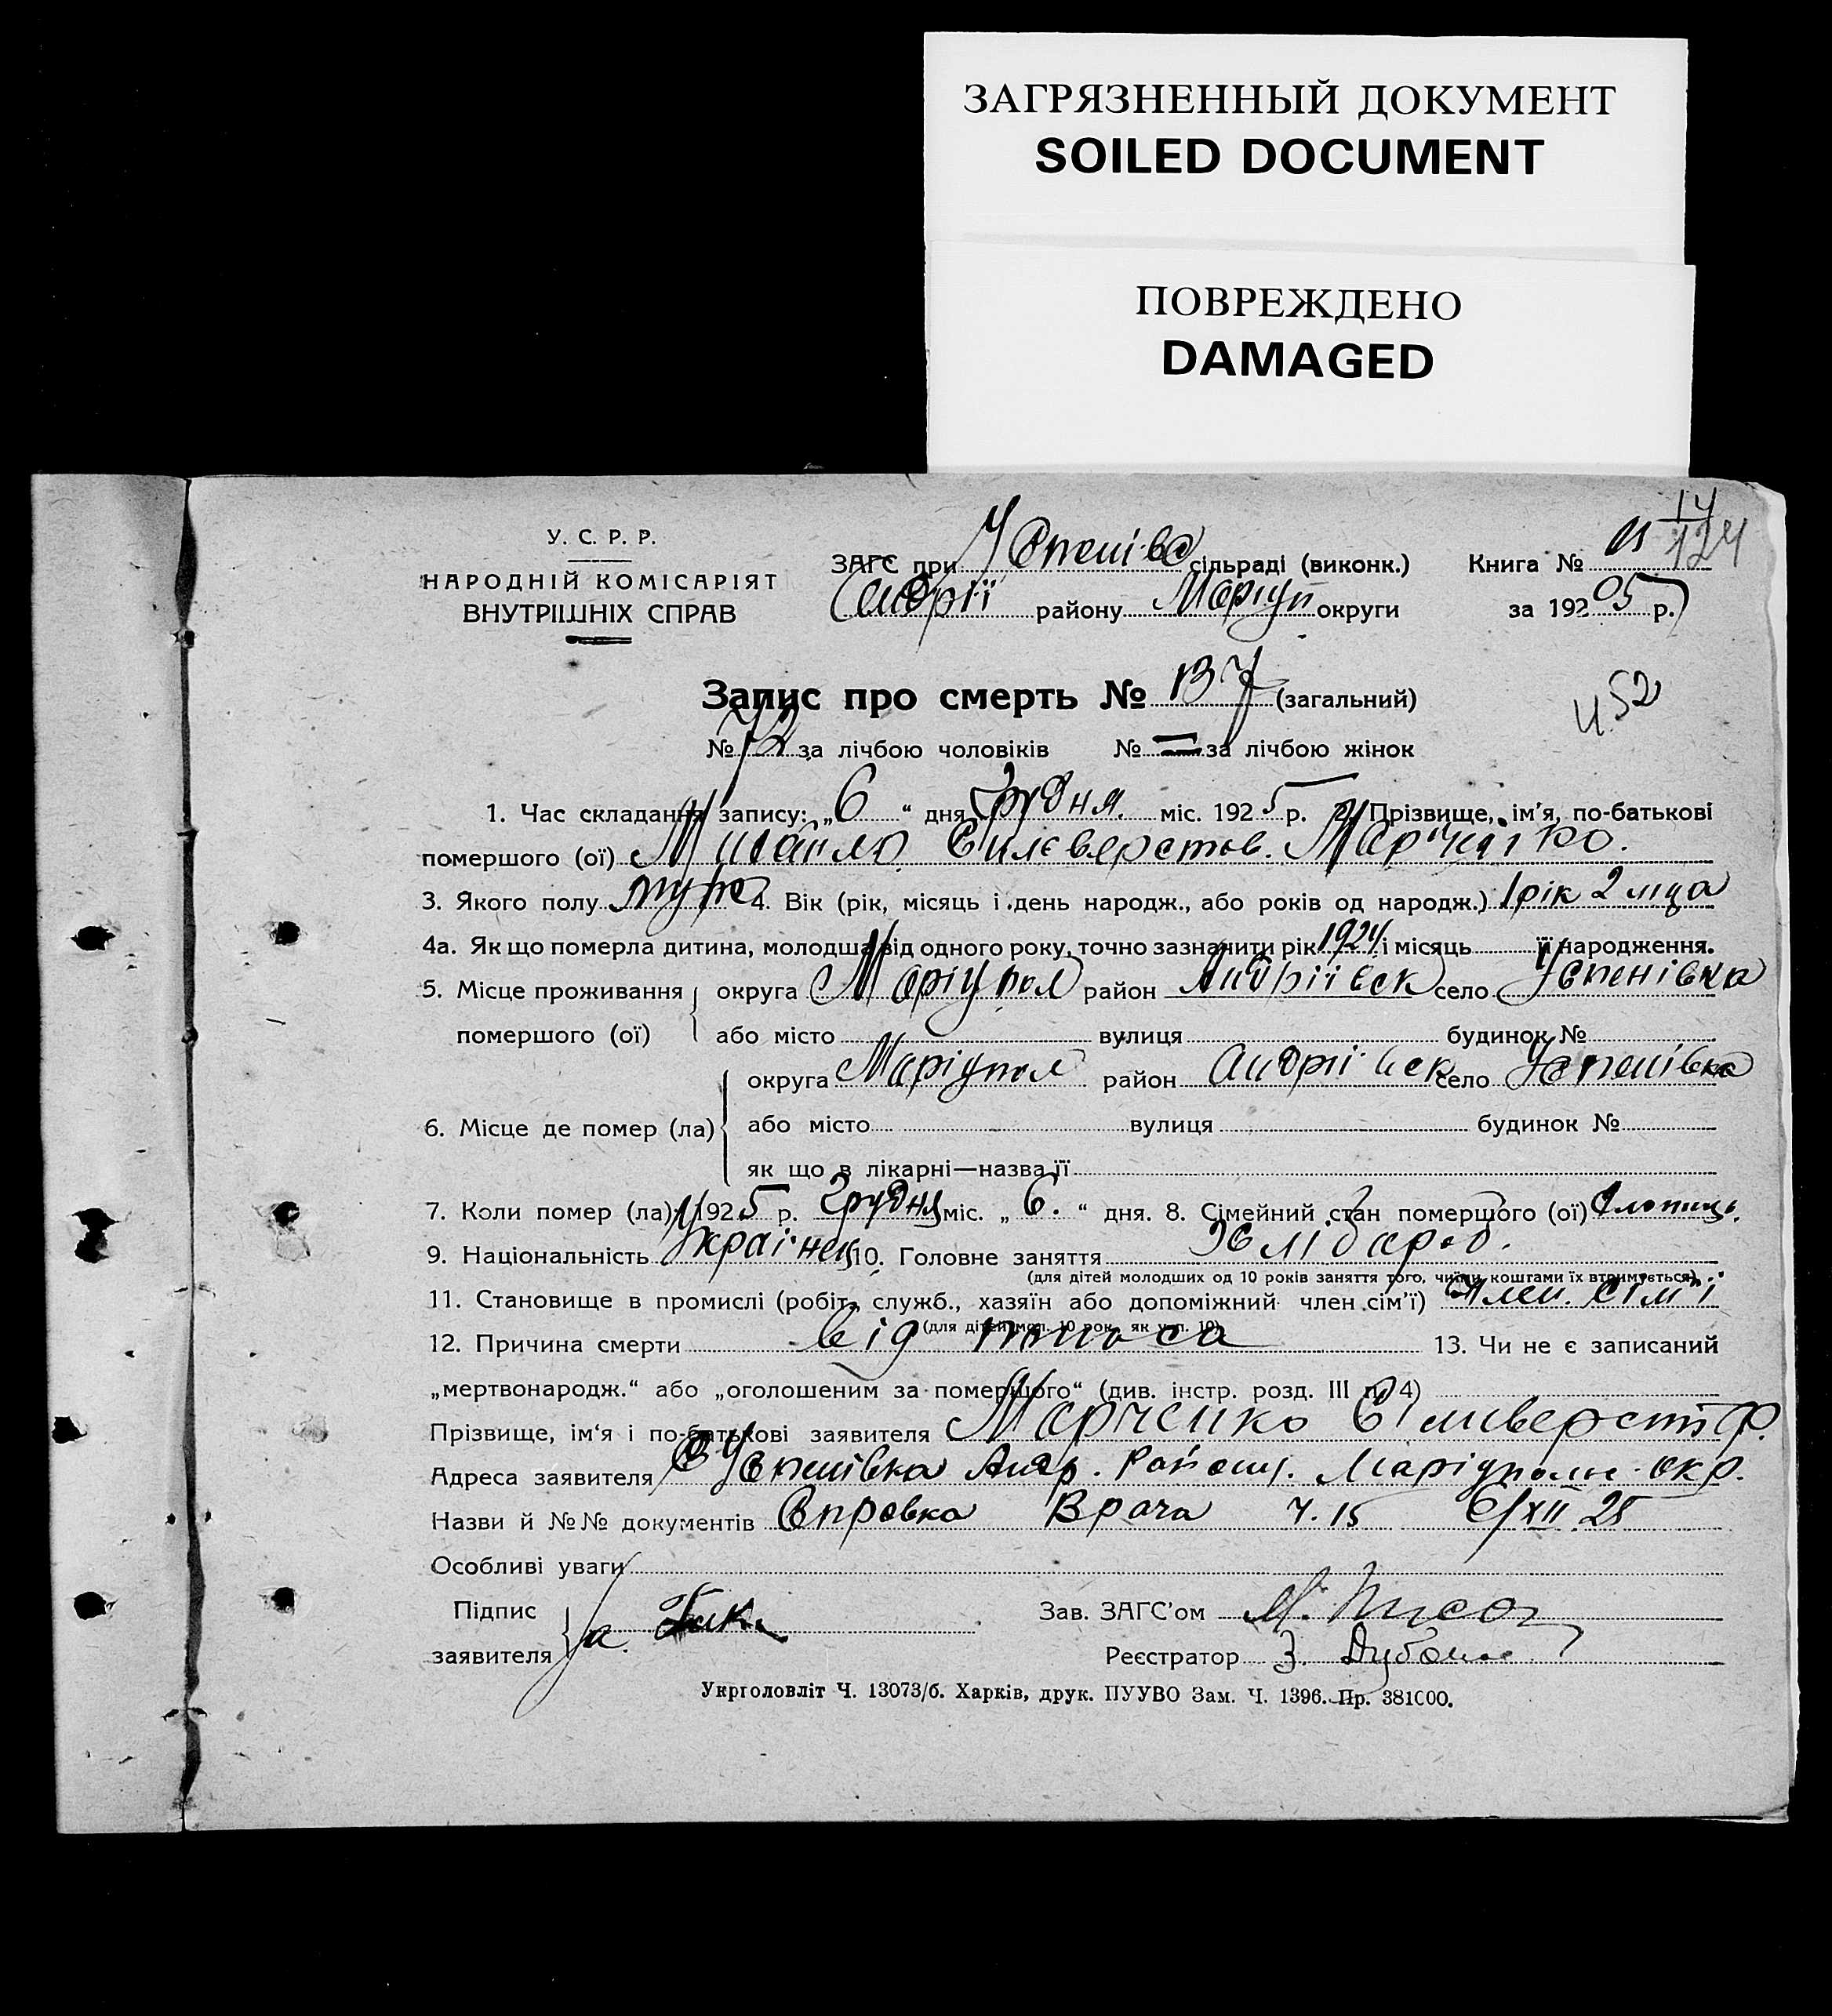 ЗАГРЯЗНЕННЫЙ ДОКУМЕНТ
SOILED DOCUMENT
ПОВРЕЖДЕНО
DAMAGED
У. С. Р. Р.
НАРОДНІЙ КОМІСАРІЯТ
ВНУТРІШНІХ СПРАВ
ЗАГС при Успенівс сільраді (виконк.) Книга №
Андрії району Маріуп округи за 1925 р.
Запис про смерть № 137 (загальний)
452
№ 72 за лічбою чоловіків № — за лічбою жінок
1. Час складання запису: „6“ дня Грудня міс. 1925 р. 2. Прізвище, ім’я, по-батькові
помершого (ої) Михайло Силєверстов. Марченко.
3. Якого полу муж 4. Вік (рік, місяць і день народж., або років од народж.) 1 рік 2 міца
4а. Як що померла дитина, молодша від одного року, точно зазначити рік 1924 і місяць її народження.
5. Місце проживання округа Маріупол район Андріївск село Успенівка
помершого (ої) або місто вулиця будинок №
округа Маріупол район Андріївск село Успенівка
6. Місце де помер (ла) або місто вулиця будинок №
як що в лікарні—назва її
7. Коли помер (ла) 1925 р. Грудня міс. „6.“ дня. 8. Сімейний стан помершого (ої) Хлопиць.
9. Національність Українец 10. Головне заняття Хлібороб.
(для дітей молодших од 10 років заняття того, чиїми коштами їх втримується)
11. Становище в промислі (робіт., служб., хазяїн або допоміжний член сім’ї) Член. Сім’ї
(для дітей мол. 10 рок., як у п. 10)
12. Причина смерти від поноса 13. Чи не є записаний
„мертвонародж.“ або „оголошеним за помершого“ (див. інстр. розд. III п. 4)
Прізвище, ім‘я і по-батькові заявителя Марченко Силиверст Ф.
Адреса заявителя С Успенівка Андр. Району. Маріуполь. окр.
Назви й №№ документів Справка Врача Ч. 15 6/XII 25
Особливі уваги
Підпис
заявителя за
Зав. ЗАГС’ом М.
Реєстратор З.
Укрголовліт Ч. 13073/б. Харків, друк. ПУУВО Зам. Ч. 1396. Пр. 381000.